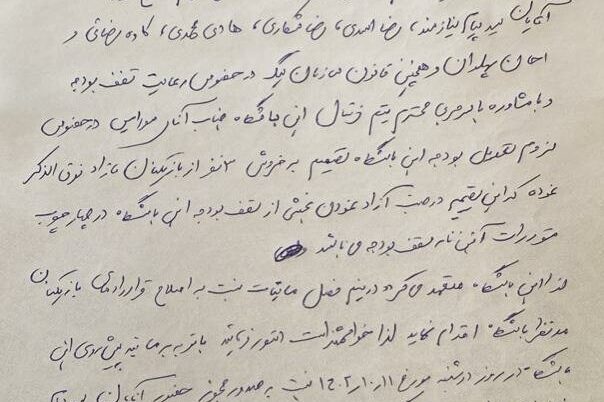 آقایان سید پیام نیازمند، رضا اسدی، رضا شکاری، هادی محمدی، کاوه رضائی و
احسان پهلوان و همچنین قانون سازمان لیگ در خصوص رعایت سقف بودجه
و با مشاوره با سرمربی محترم تیم فوتبال این باشگاه جناب آقای مورایس در خصوص
لزوم تعدیل بودجه این باشگاه تصمیم به فروش ۳ نفر از بازیکنان مازاد فوق الذکر
نموده که این تصمیم در جهت آزاد نمودن بخشی از سقف بودجه این باشگاه در چهارچوب
مقررات آئین نامه سقف بودجه می باشد
لذا این باشگاه متعهد می گردد در نیم فصل مابقیات نسبت به اصلاح قراردادهای بازیکنان
مد نظر باشگاه اقدام نماید لذا خواهشمند است دستور فرمائید با توجه به مسابقه پیش روی این
باشگاه در روز دوشنبه مورخ ۱۴۰۲/۱۰/۱۱ نسبت به صدور مجوز حضور آقایان